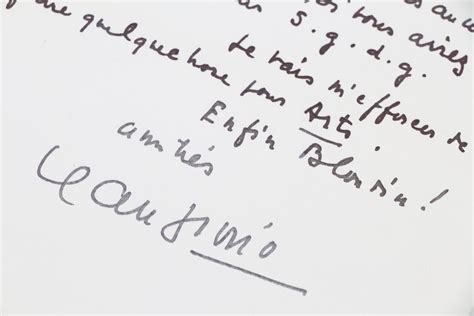 vous aviez
S.g.d.g.
Je vais m'efforcer de
quelque chose pour Arts.
Enfin Blondin!
amitiés
Jean Giono